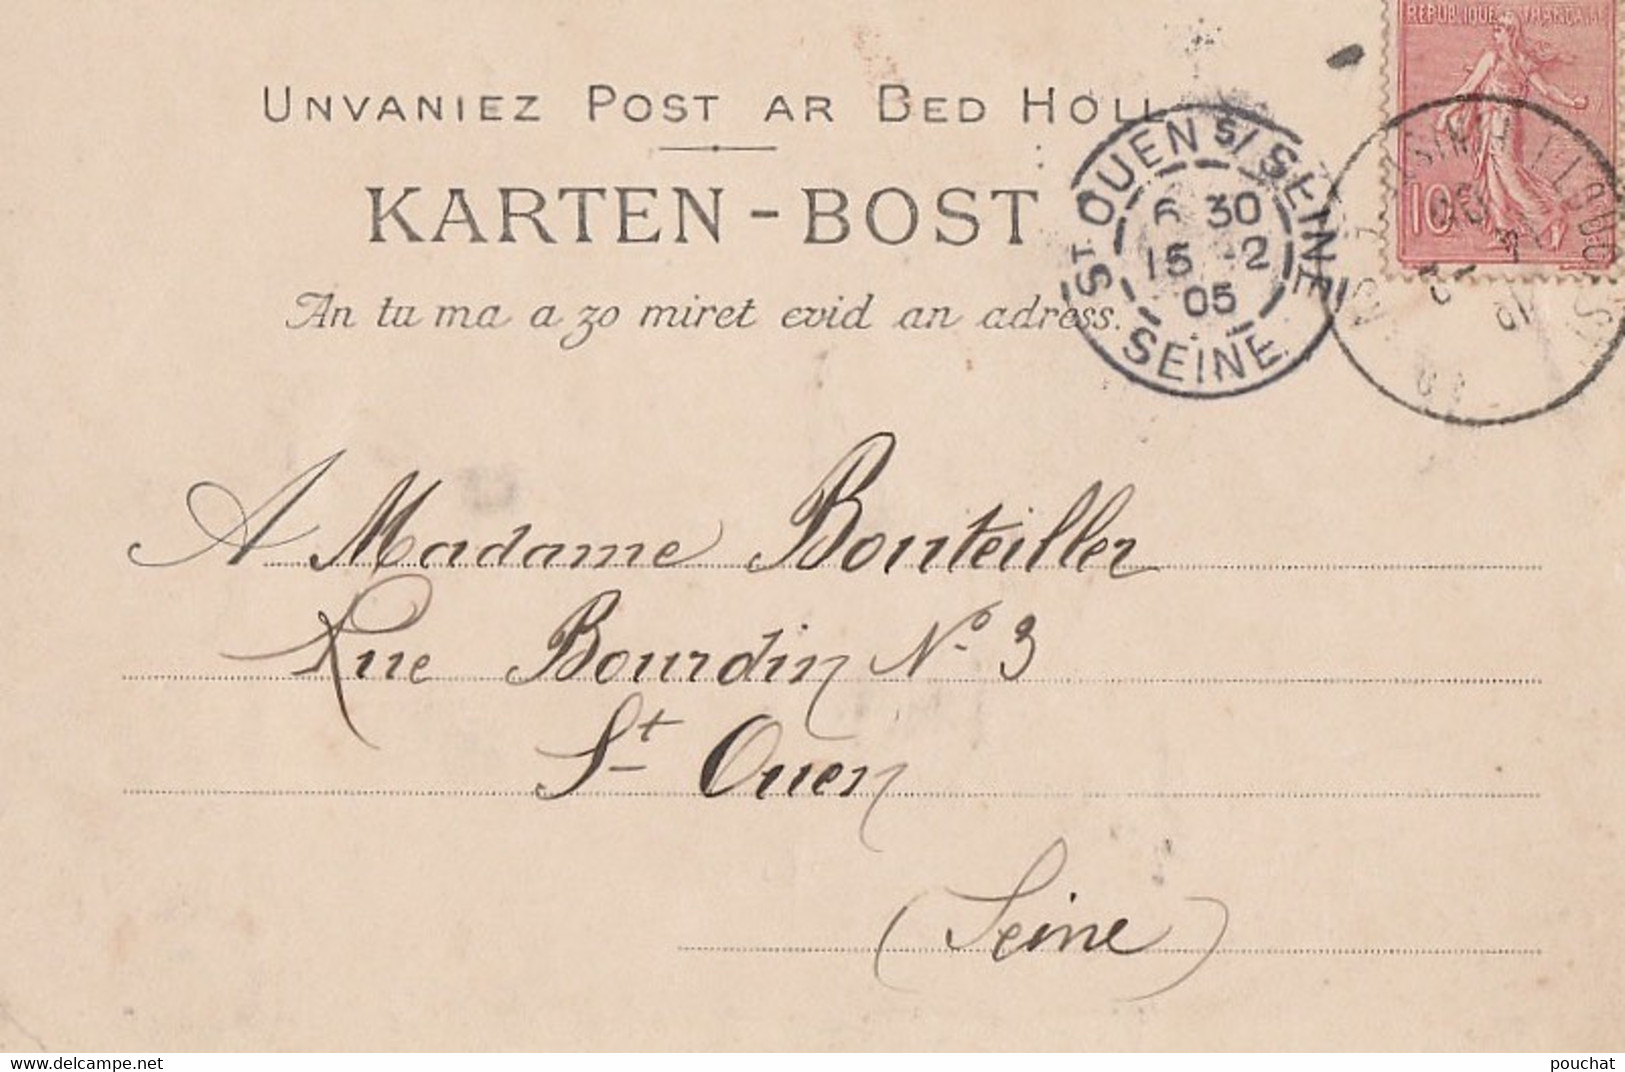 RÉPUBLIQUE FRANÇAISE
10
UNVANIEZ POST AR BED HOLL
KARTEN-BOST
An tu ma a zo miret evid an adress.
ST OUEN S/ SEINE
6 30
15 -2
05
SEINE
A Madame Bouteiller
Rue Bourdin No. 3
St Ouen
(Seine)
delcampe.net
pouchat